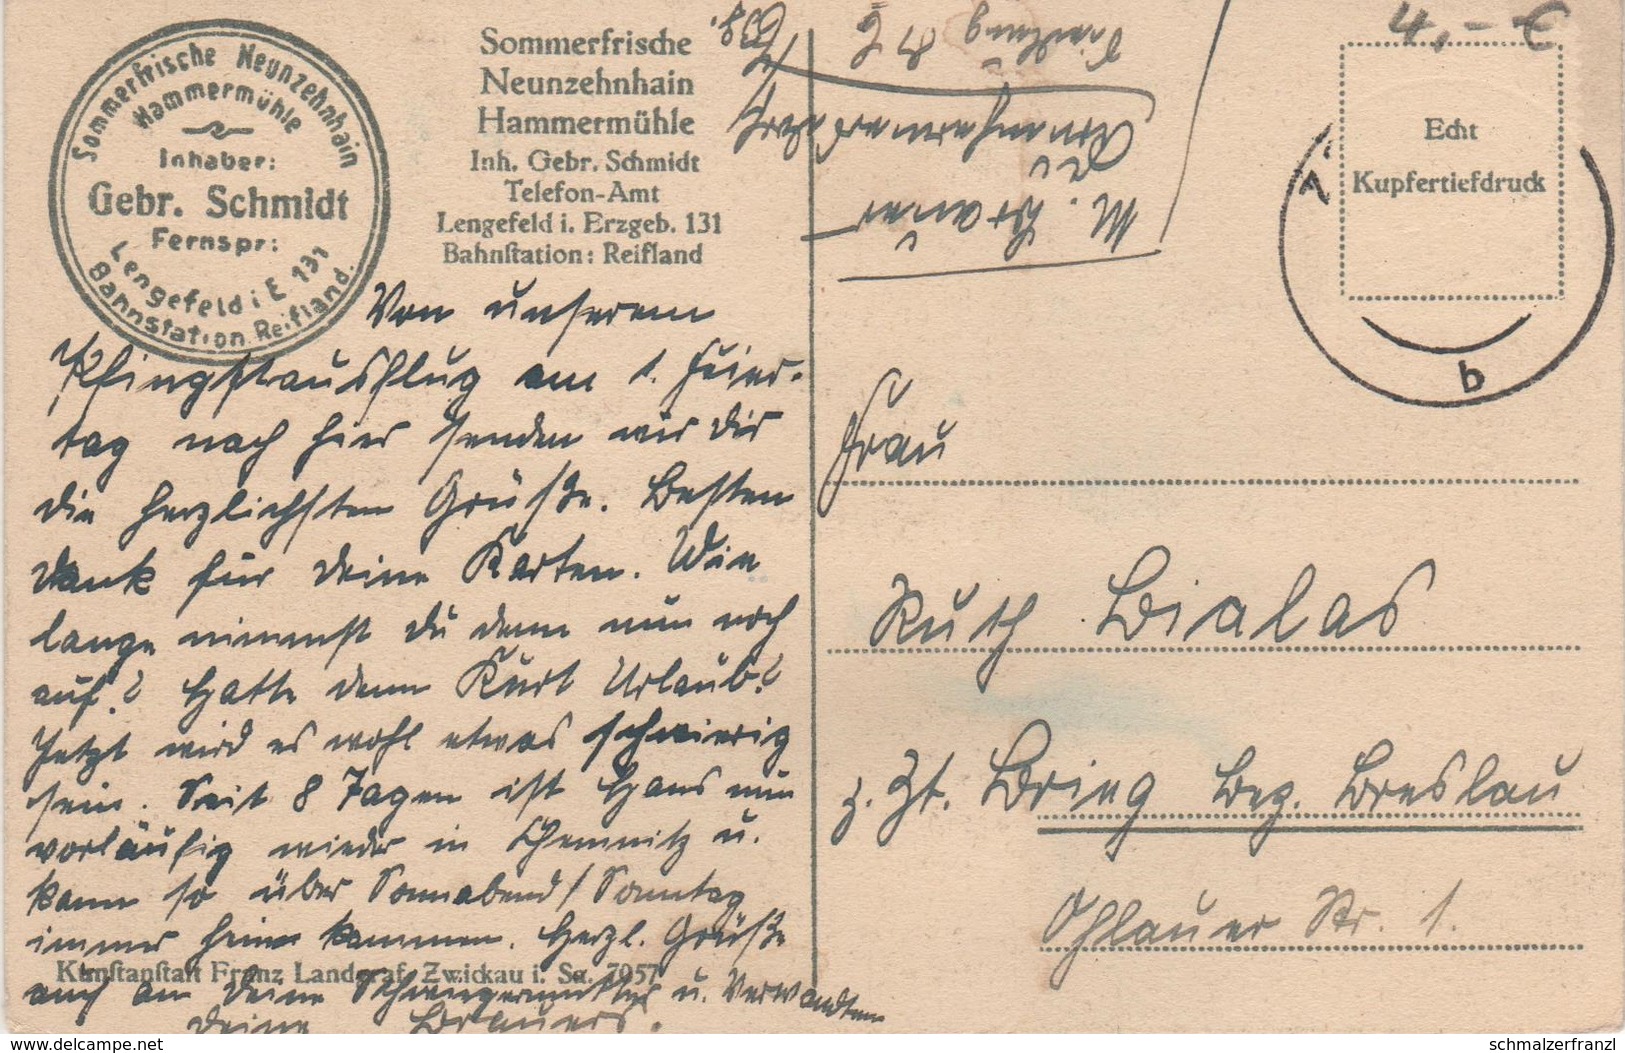 Sommerfrische Neunzehnhain
Hammermühle
Inhaber:
Gebr. Schmidt
Fernspr:
Lengefeld i E 131
Bahnstation Reifland.
Sommerfrische
Neunzehnhain
Hammermühle
Inh. Gebr. Schmidt
Telefon-Amt
Lengefeld i. Erzgeb. 131
Bahnstation: Reifland
M. Brauer
4,- €
Echt
Kupfertiefdruck
b
Von unserem
Pfingstausflug am 1. Feier-
tag nach hier senden wir Dir
die herzlichsten Grüße. Besten
Dank für Deine Karten. Wie
lange nimmst Du denn nun noch
auf? Hatte denn Kurt Urlaub?
Jetzt wird es wohl etwas schwierig
sein. Seit 8 Tagen ist Hans nun
vorläufig wieder in Chemnitz u.
kann so über Sonnabend/Sonntag
immer heim kommen. Herzl. Grüße
auch an Deine Schwiegermutter u. Verwandten
Deine Brauers.
Kunstanstalt Franz Landgraf, Zwickau i. Sa. 7957
Frau
Ruth Bialas
z. Zt. Brieg Bez. Breslau
Ohlauer Str. 1.
www.delcampe.net
schmalzerfranzl